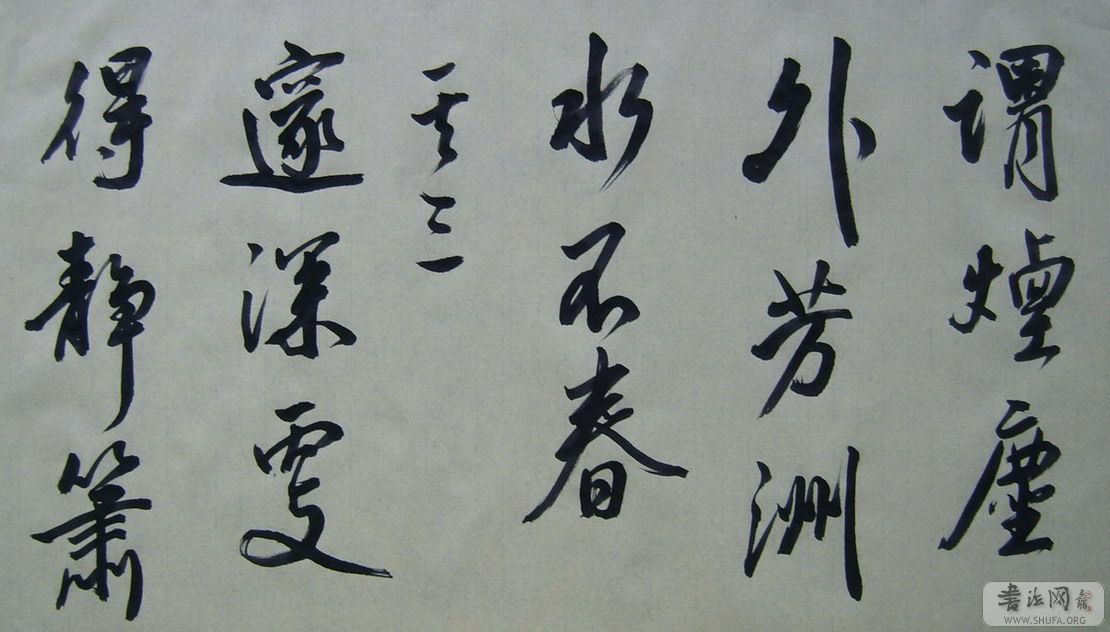 謂煙塵
外芳洲
水不春
其三
邃深更
得静簫
書法网
WWW.SHUFA.ORG